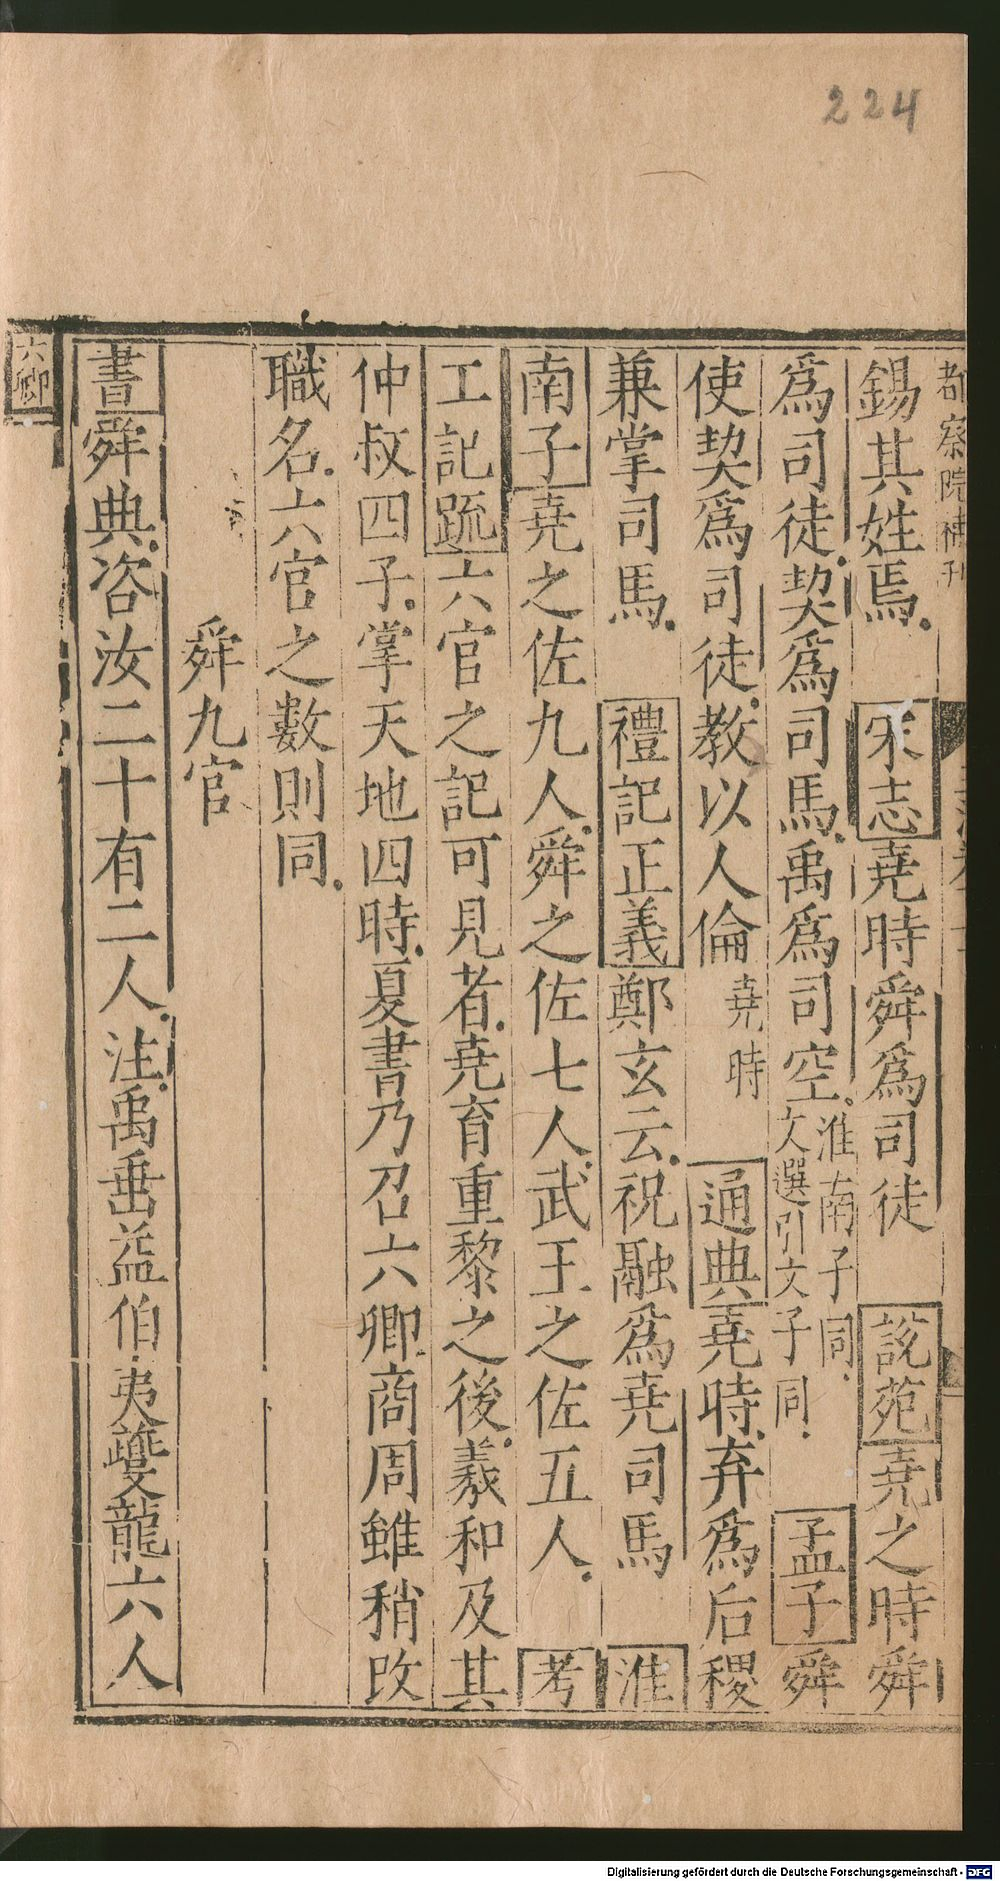 224
都察院補刊
錫其姓焉.宋志堯時舜爲司徒說苑堯之時舜
爲司徒.契爲司馬.禹爲司空.淮南子同.文選引文子同.孟子舜
使契爲司徒.教以人倫堯時通典堯時.弃爲后稷
兼掌司馬.禮記正義鄭玄云.祝融爲堯司馬淮
南子堯之佐九人.舜之佐七人.武王之佐五人.考
工記䟽六官之記可見者.堯育重黎之後.羲和及其
仲叔四子.掌天地四時.夏書乃召六卿.商周雖稍改
職名.六官之數則同.
舜九官
書舜典.咨汝二十有二人.注.禹垂益伯夷夔龍六人
六卿
Digitalisierung gefördert durch die Deutsche Forschungsgemeinschaft - DFG